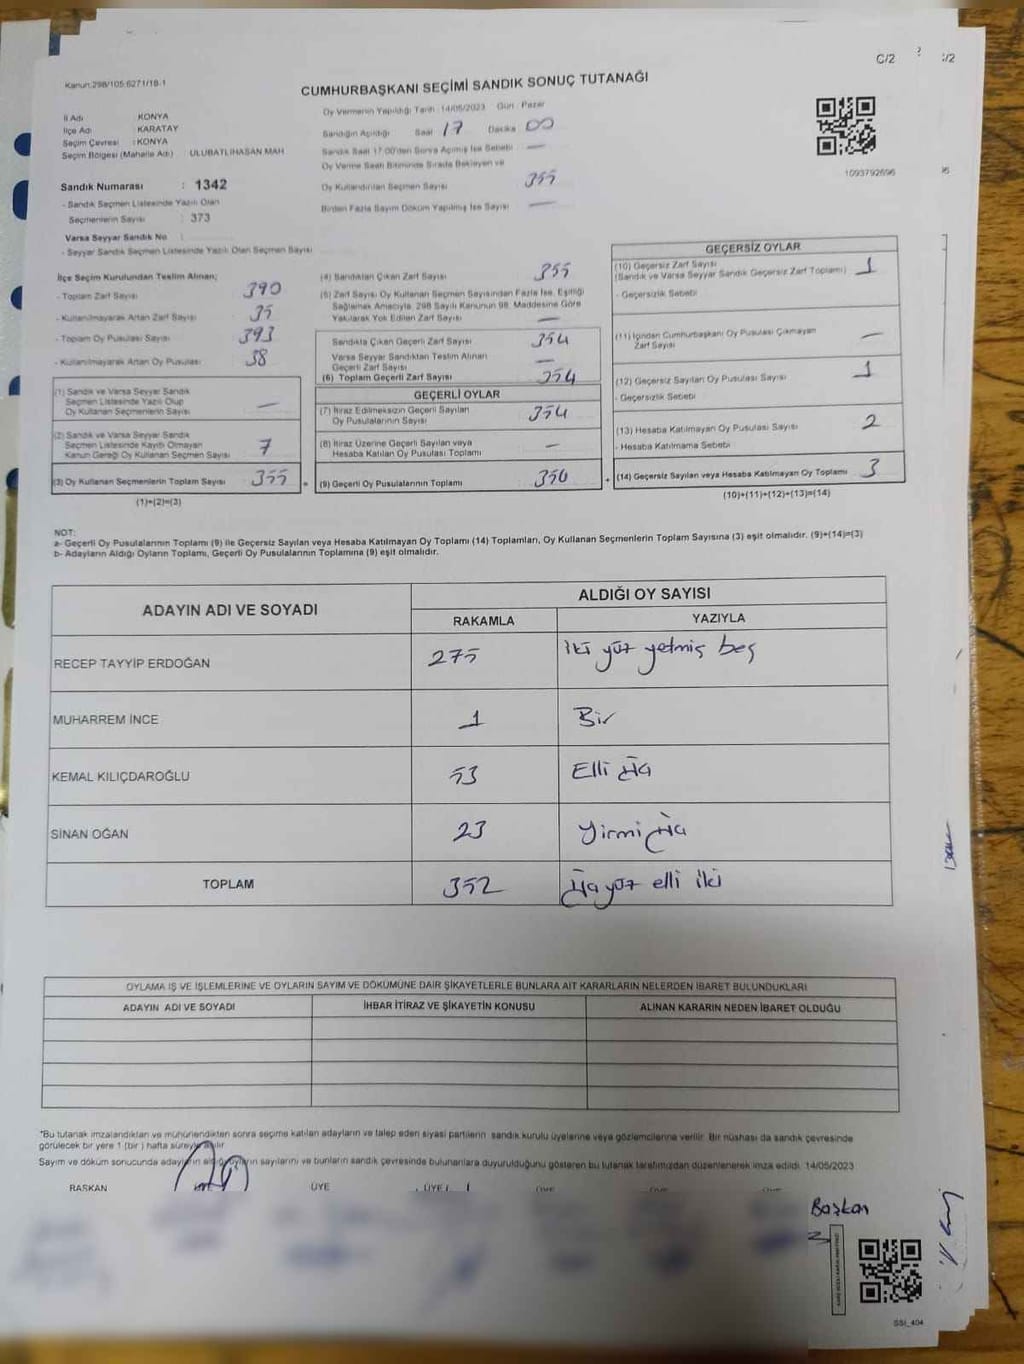 C/2
:/2
Kanun:298/105.6271/18-1
CUMHURBAŞKANI SEÇİMİ SANDIK SONUÇ TUTANAĞI
İl Adı KONYA
İlçe Adı : KARATAY
Seçim Çevresi : KONYA
Seçim Bölgesi (Mahalle Adı) : ULUBATLIHASAN MAH
Sandık Numarası : 1342
- Sandık Seçmen Listesinde Yazılı Olan
Seçmenlerin Sayısı : 373
Varsa Seyyar Sandık No
- Seyyar Sandık Seçmen Listesinde Yazılı Olan Seçmen Sayısı
Oy Vermenin Yapıldığı Tarih : 14/05/2023 Gün : Pazar
Sandığın Açıldığı Saat 17 Dakika 00
Sandık Saat 17:00'den Sonra Açılmış İse Sebebi —
Oy Verme Saati Bitiminde Sırada Bekleyen ve
Oy Kullandırılan Seçmen Sayısı 355
Birden Fazla Sayım Döküm Yapılmış İse Sayısı —
1093792696
İlçe Seçim Kurulundan Teslim Alınan;
- Toplam Zarf Sayısı 390
- Kullanılmayarak Artan Zarf Sayısı 35
- Toplam Oy Pusulası Sayısı 393
- Kullanılmayarak Artan Oy Pusulası 38
(1) Sandık ve Varsa Seyyar Sandık
Seçmen Listesinde Yazılı Olup
Oy Kullanan Seçmenlerin Sayısı —
(2) Sandık ve Varsa Seyyar Sandık
Seçmen Listesinde Kayıtlı Olmayan
Kanun Gereği Oy Kullanan Seçmen Sayısı 7
(3) Oy Kullanan Seçmenlerin Toplam Sayısı 355
(1)+(2)=(3)
(4) Sandıktan Çıkan Zarf Sayısı 355
(5) Zarf Sayısı Oy Kullanan Seçmen Sayısından Fazla İse, Eşitliği
Sağlamak Amacıyla, 298 Sayılı Kanunun 98. Maddesine Göre
Yakılarak Yok Edilen Zarf Sayısı —
Sandıkta Çıkan Geçerli Zarf Sayısı 354
Varsa Seyyar Sandıktan Teslim Alınan
Geçerli Zarf Sayısı —
(6) Toplam Geçerli Zarf Sayısı 354
GEÇERLİ OYLAR
(7) İtiraz Edilmeksizin Geçerli Sayılan
Oy Pusulalarının Sayısı 354
(8) İtiraz Üzerine Geçerli Sayılan veya
Hesaba Katılan Oy Pusulası Toplamı —
= (9) Geçerli Oy Pusulalarının Toplamı
GEÇERSİZ OYLAR
(10) Geçersiz Zarf Sayısı
(Sandık ve Varsa Seyyar Sandık Geçersiz Zarf Toplamı) 1
- Geçersizlik Sebebi
(11) İçinden Cumhurbaşkanı Oy Pusulası Çıkmayan
Zarf Sayısı —
(12) Geçersiz Sayılan Oy Pusulası Sayısı 1
- Geçersizlik Sebebi
(13) Hesaba Katılmayan Oy Pusulası Sayısı 2
- Hesaba Katılmama Sebebi
+ (14) Geçersiz Sayılan veya Hesaba Katılmayan Oy Toplamı 3
(10)+(11)+(12)+(13)=(14)
NOT:
a- Geçerli Oy Pusulalarının Toplamı (9) ile Geçersiz Sayılan veya Hesaba Katılmayan Oy Toplamı (14) Toplamları, Oy Kullanan Seçmenlerin Toplam Sayısına (3) eşit olmalıdır. (9)+(14)=(3)
b- Adayların Aldığı Oyların Toplamı, Geçerli Oy Pusulalarının Toplamına (9) eşit olmalıdır.
ADAYIN ADI VE SOYADI ALDIĞI OY SAYISI
RAKAMLA YAZIYLA
RECEP TAYYİP ERDOĞAN 275 iki yüz yetmiş beş
MUHARREM İNCE 1 Bir
KEMAL KILIÇDAROĞLU 53 Elli üç
SİNAN OĞAN 23 Yirmi üç
TOPLAM 352 Üç yüz elli iki
OYLAMA İŞ VE İŞLEMLERİNE VE OYLARIN SAYIM VE DÖKÜMÜNE DAİR ŞİKAYETLERLE BUNLARA AİT KARARLARIN NELERDEN İBARET BULUNDUKLARI
ADAYIN ADI VE SOYADI İHBAR İTİRAZ VE ŞİKAYETİN KONUSU ALINAN KARARIN NEDEN İBARET OLDUĞU
*Bu tutanak imzalandıktan ve mühürlendikten sonra seçime katılan adayların ve talep eden siyasi partilerin sandık kurulu üyelerine veya gözlemcilerine verilir. Bir nüshası da sandık çevresinde
görülecek bir yere 1 (bir ) hafta süreyle asılır
Sayım ve döküm sonucunda adayların aldığı oyların sayılarını ve bunların sandık çevresinde bulunanlara duyurulduğunu gösteren bu tutanak tarafımızdan düzenlenerek imza edildi. 14/05/2023
BAŞKAN ÜYE ÜYE ÜYE ÜYE ÜYE
Başkan
SSI_404